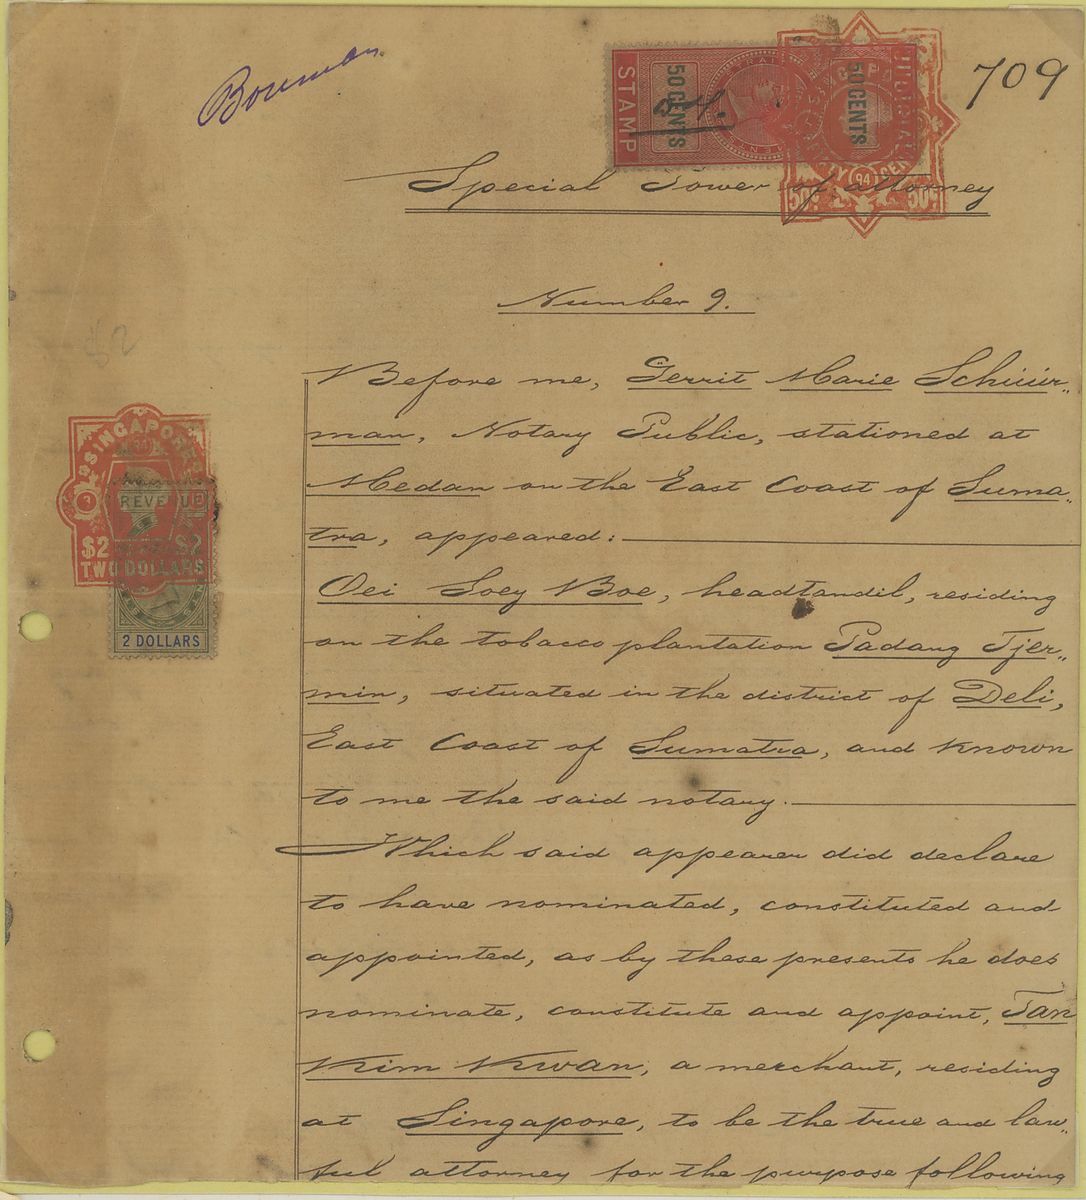 Bouman
709
STAMP
50 CENTS
50 CENTS
JUDICIAL
94
50c
50c
Special Power of attorney
Number 9.
$2
Before me, Gerrit Marie Schüür„
man, Notary Public, stationed at
Medan on the East Coast of Suma„
tra, appeared:
Oei Soey Boe, headtandil, residing
on the tobacco plantation Padang Tjer„
min, situated in the district of Deli,
East Coast of Sumatra, and known
to me the said notary.
Which said appearer did declare
to have nominated, constituted and
appointed, as by these presents he does
nominate, constitute and appoint, Tan
Kim Kwan, a merchant, residing
at Singapore, to be the true and law„
ful attorney for the purpose following
SINGAPORE
REVENUE
$2 $2
TWO DOLLARS
2 DOLLARS